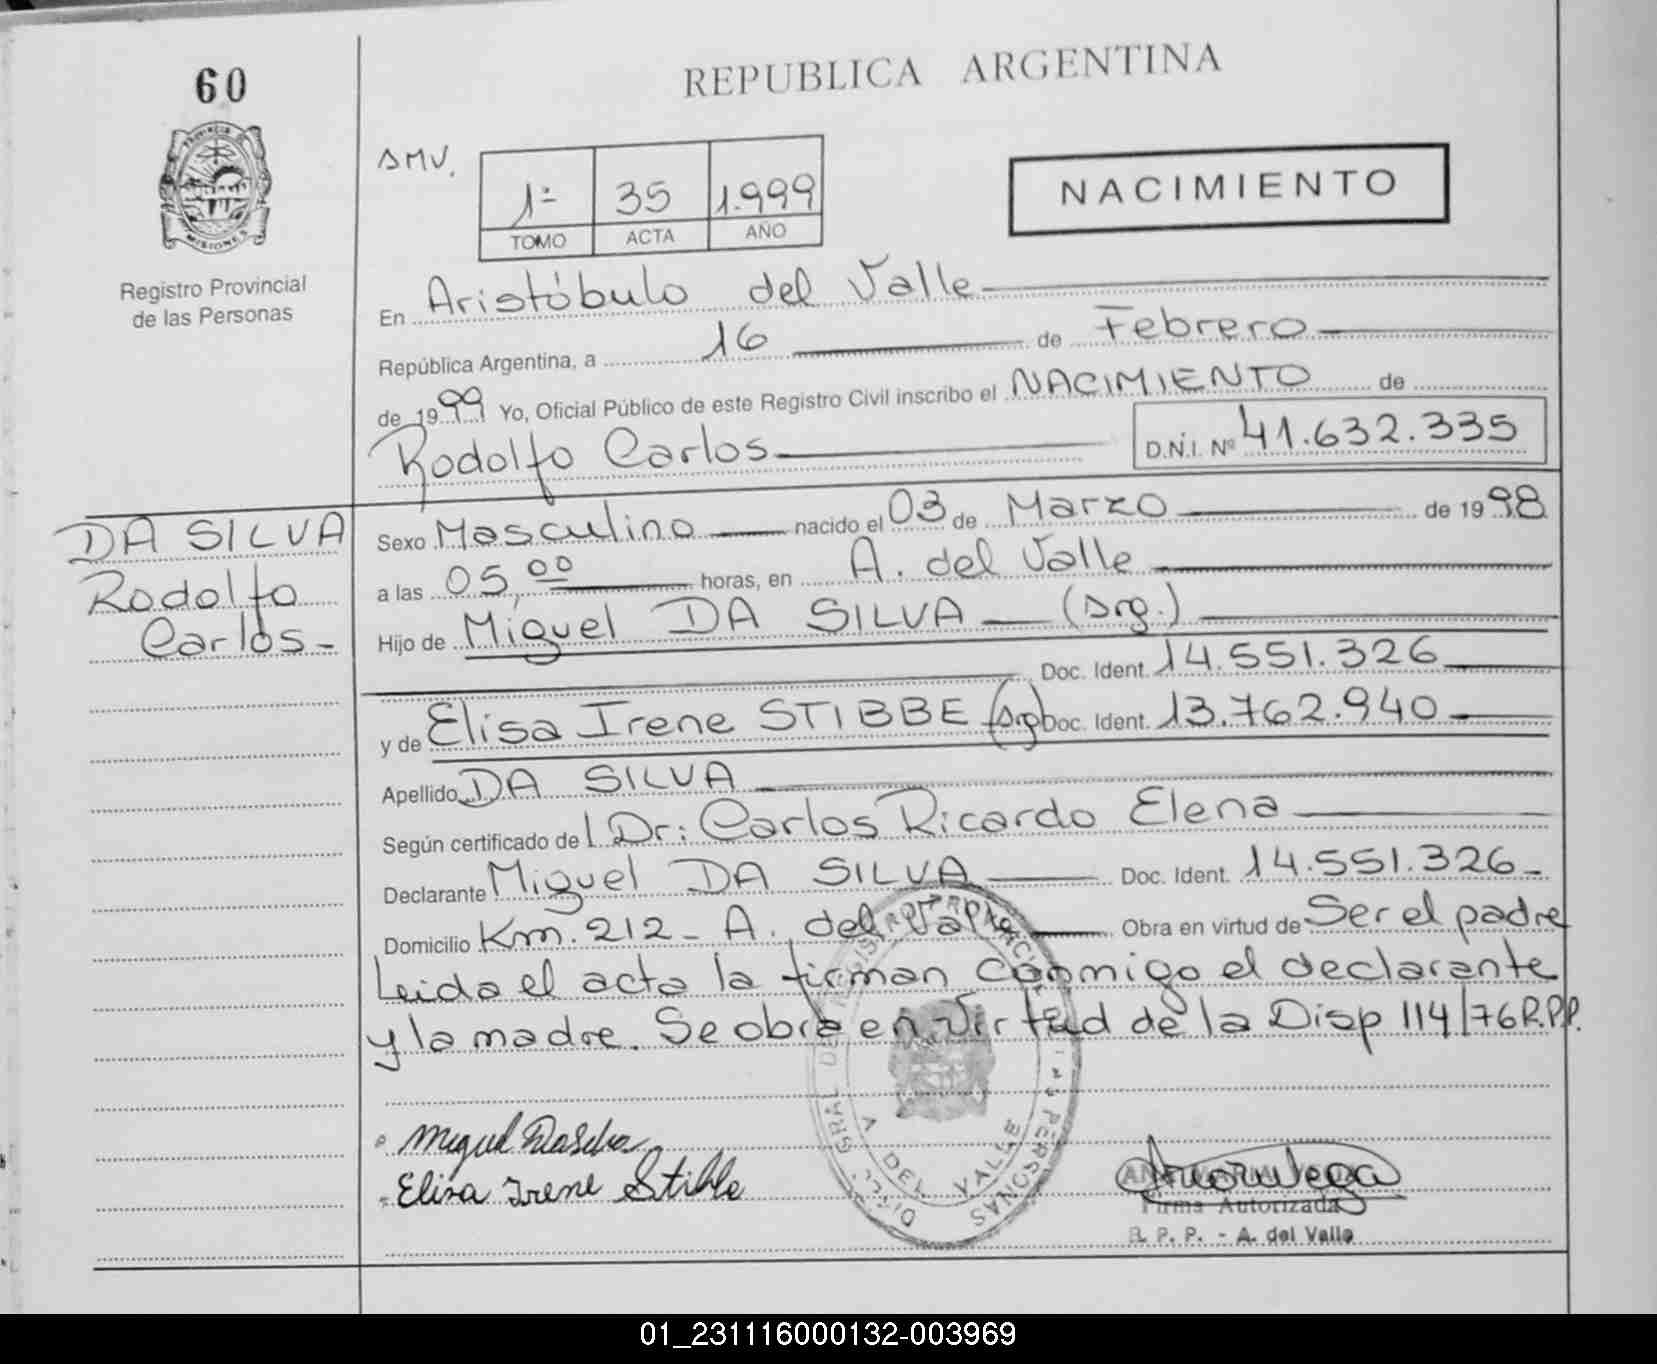 60
REPUBLICA ARGENTINA
PROVINCIA DE
MISIONES
Registro Provincial
de las Personas
AMV.
1ª 35 1.999
TOMO ACTA AÑO
NACIMIENTO
En Aristóbulo del Valle
República Argentina, a 16 de Febrero
de 1999 Yo, Oficial Público de este Registro Civil inscribo el NACIMIENTO de
Rodolfo Carlos D.N.I. Nº 41.632.335
DA SILVA
Rodolfo
Carlos-
Sexo Masculino nacido el 03 de Marzo de 1998
a las 05,00 horas, en A. del Valle
Hijo de Miguel DA SILVA (Arg.)
Doc. Ident. 14.551.326
y de Elisa Irene STIBBE (Arg) Doc. Ident. 13.762.940
Apellido DA SILVA
Según certificado del Dr: Carlos Ricardo Elena
Declarante Miguel DA SILVA Doc. Ident. 14.551.326-
Domicilio Km. 212- A. del Valle Obra en virtud de Ser el padre
Leida el acta la firman conmigo el declarante
y la madre. Se obra en virtud de la Disp 114/76 R.P.P.
Miguel DaSilva
Elisa Irene Stibbe
A. DEL VALLE
Firma Autorizada
R. P. P. - A. del Valle
01_231116000132-003969